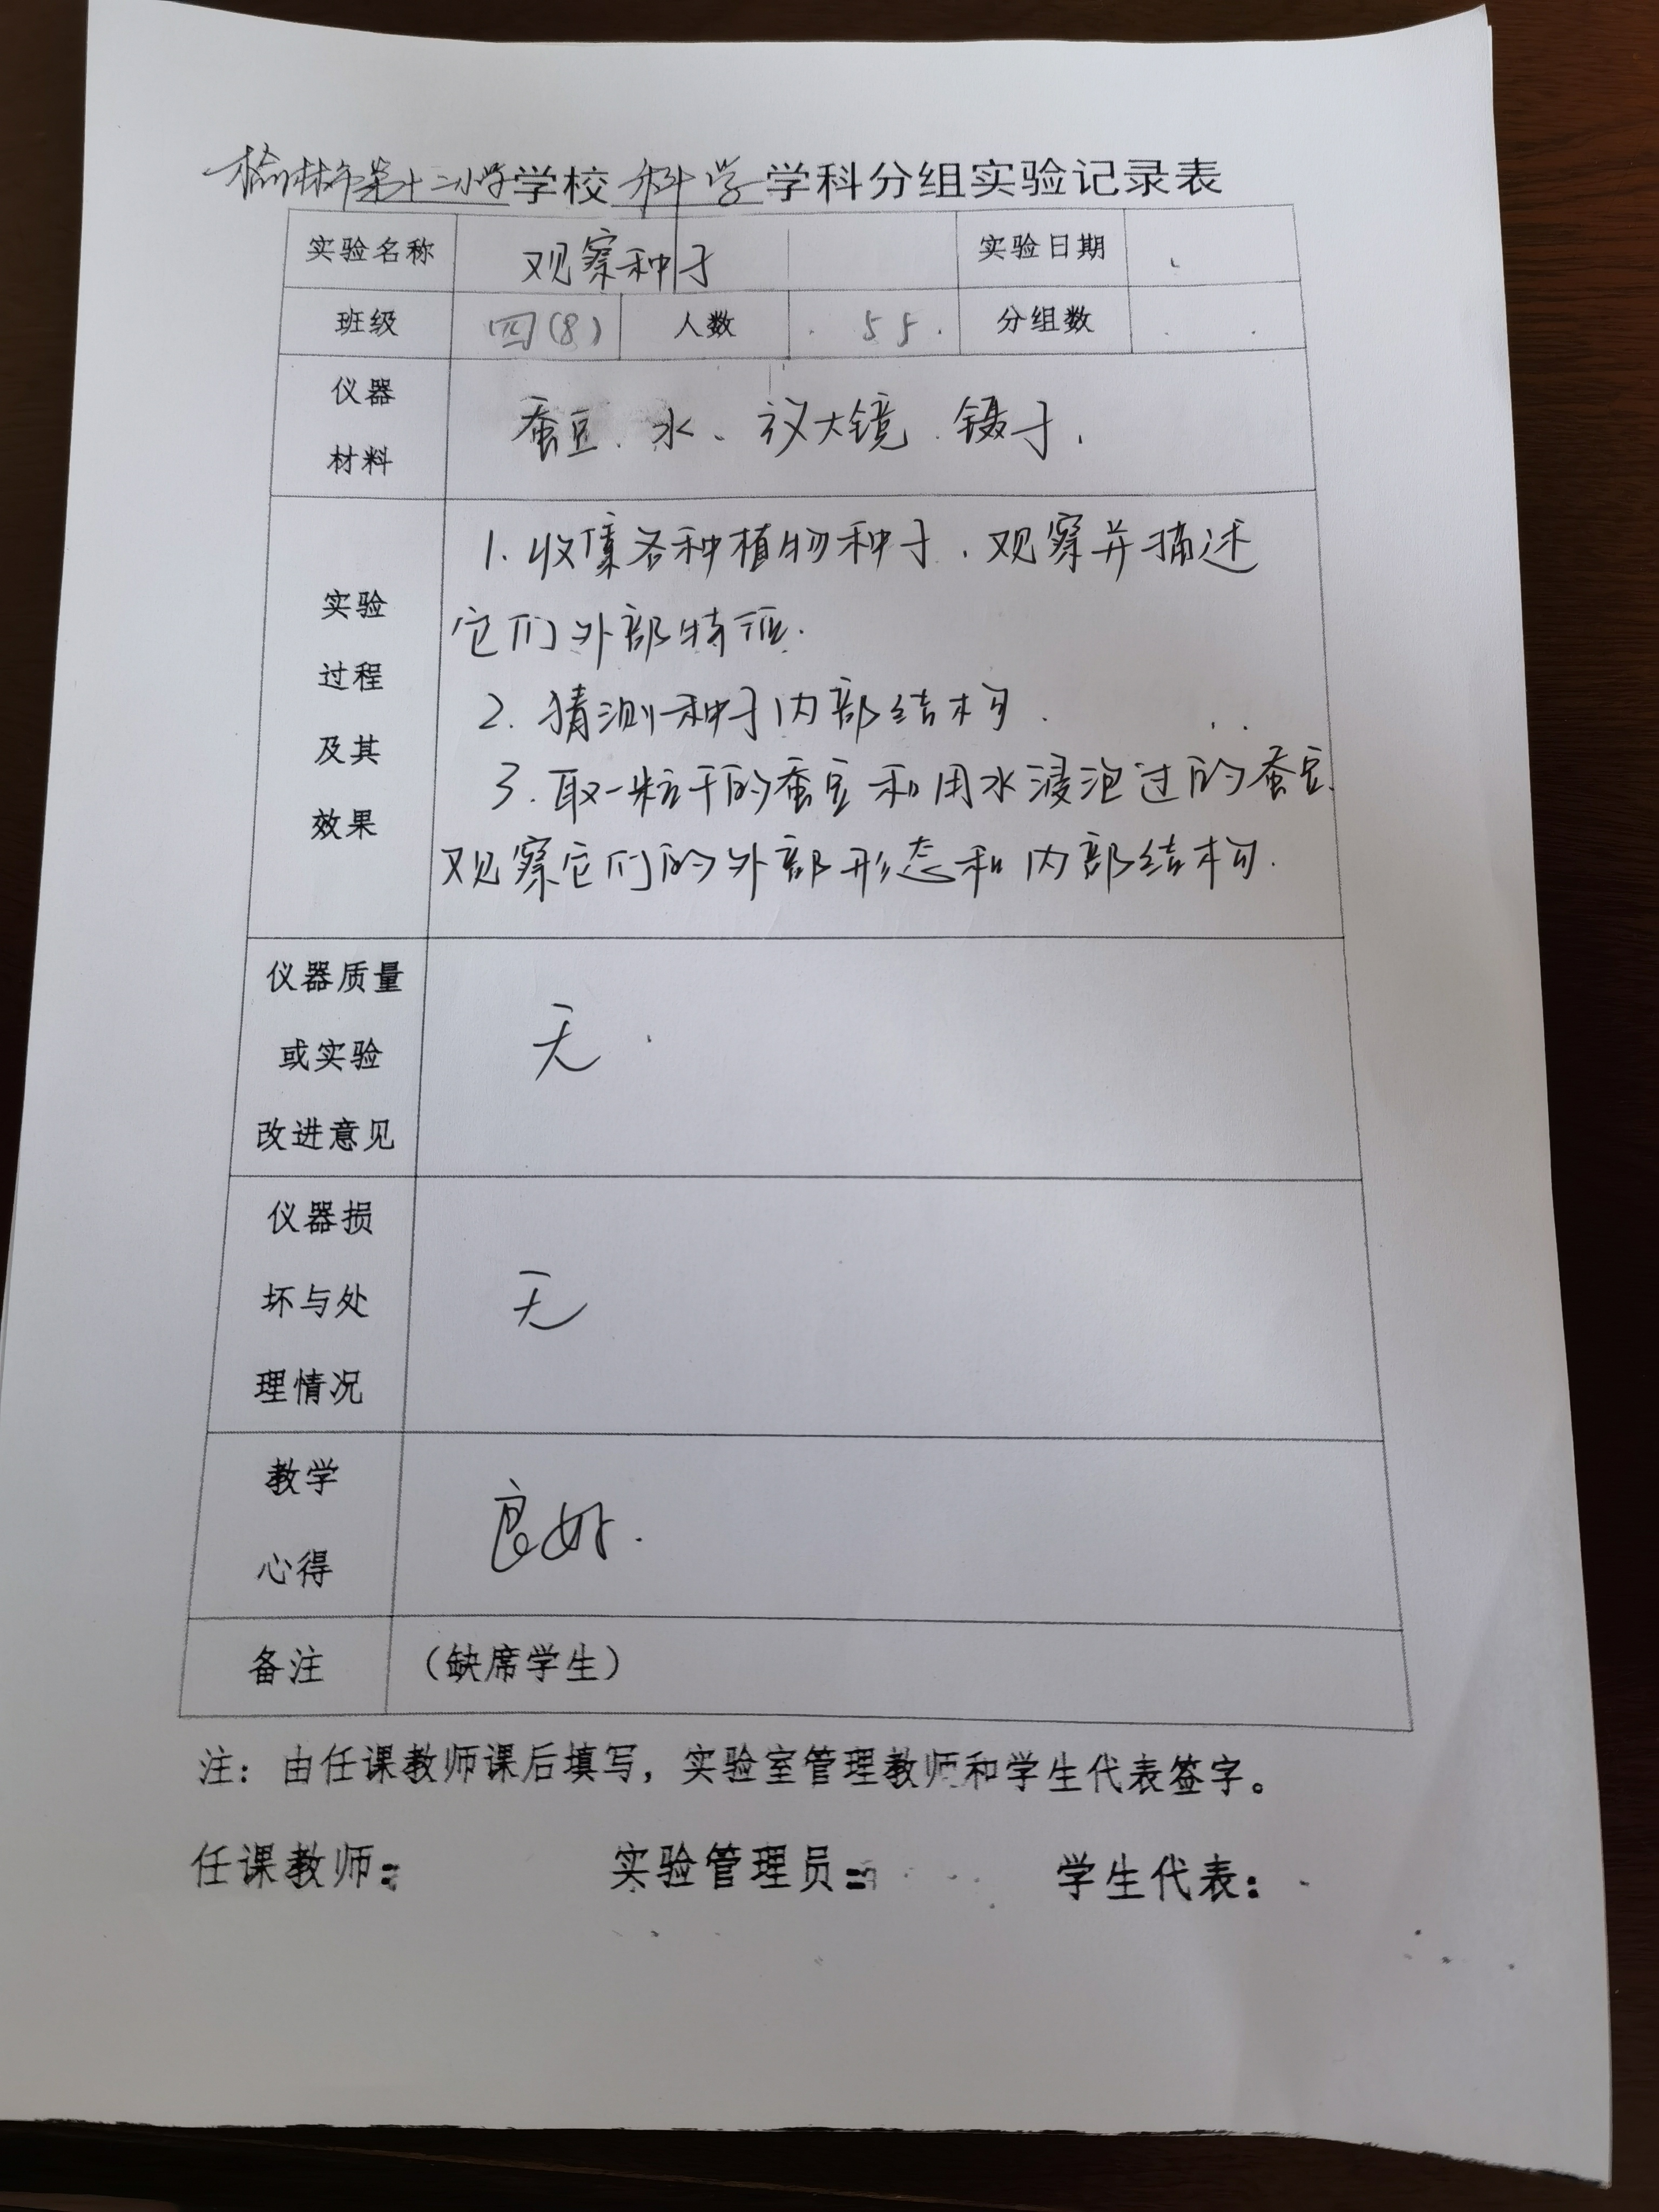 榆林市第十二小学学校科学学科分组实验记录表
实验名称 观察种子 实验日期
班级 四(8) 人数 55 分组数
仪器
材料
蚕豆、水、放大镜、镊子.
实验
过程
及其
效果
1.收集各种植物种子,观察并描述
它们外部特征.
2.猜测种子内部结构.
3.取一粒干的蚕豆和用水浸泡过的蚕豆.
观察它们的外部形态和内部结构.
仪器质量
或实验
改进意见
无.
仪器损
坏与处
理情况
无
教学
心得
良好.
备注 (缺席学生)
注：由任课教师课后填写，实验室管理教师和学生代表签字。
任课教师： 实验管理员： 学生代表：